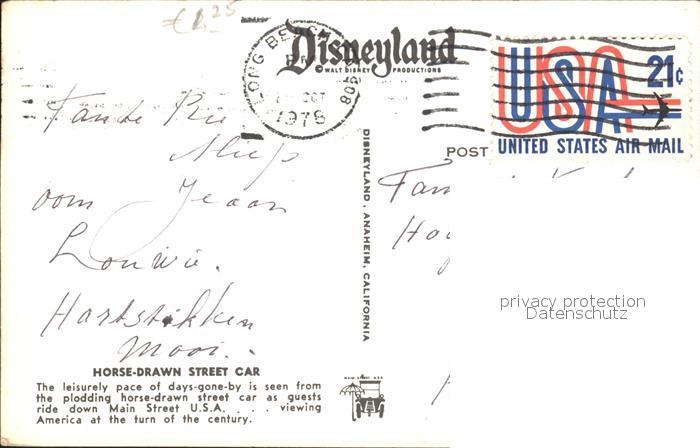 € 1.25
LONG BEACH
PM
OCT
1978
908
Disneyland
© WALT DISNEY PRODUCTIONS
USA 21¢
UNITED STATES AIR MAIL
POST
Tante Rie
Miep
oom Jeaan
Louwie.
Hartstikken
Mooi..
Fam
DISNEYLAND, ANAHEIM, CALIFORNIA
privacy protection
Datenschutz
HORSE-DRAWN STREET CAR
The leisurely pace of days-gone-by is seen from
the plodding horse-drawn street car as guests
ride down Main Street U.S.A. . . . viewing
America at the turn of the century.